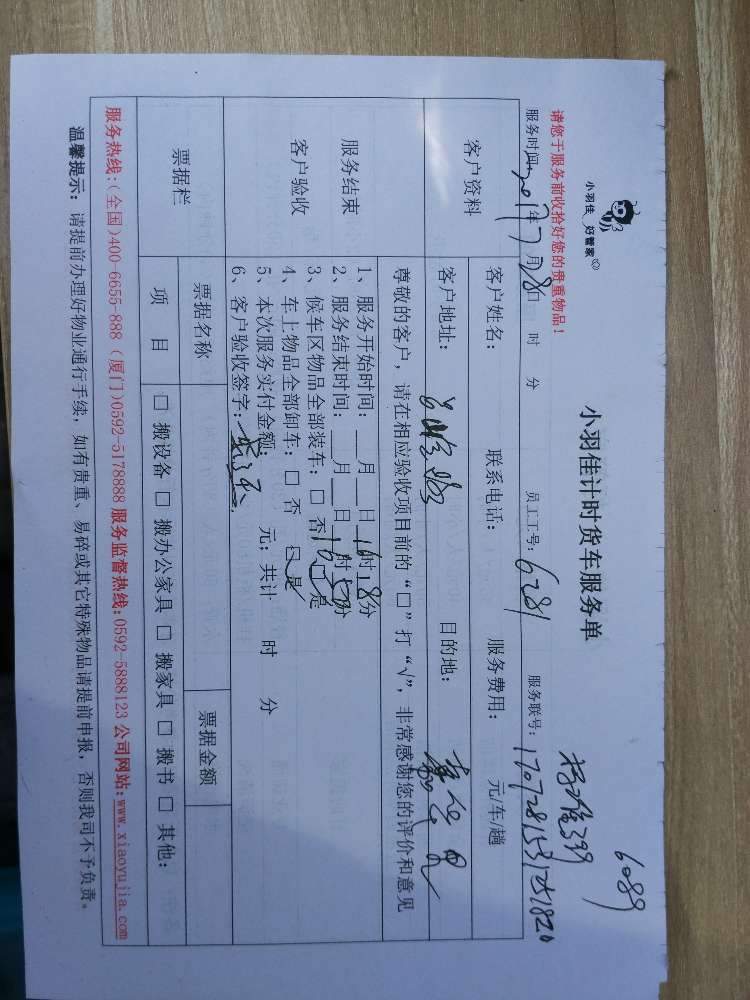 6089
小羽佳 好管家
小羽佳计时货车服务单
请您于服务前收拾好您的贵重物品!
服务时间: 2017年7月28日 时 分 员工工号: 6281 服务联号: 1707281531251820
客户资料
客户姓名: 联系电话: 服务费用: 元/车/趟
客户地址: 目的地:
服务结束
客户验收
尊敬的客户，请在相应验收项目前的“□”打“√”，非常感谢您的评价和意见
1、服务开始时间: 月 日 16时18分
2、服务结束时间: 月 日 16时50分
3、候车区物品全部装车: □ 否 □ 是
4、车上物品全部卸车: □ 否 □ 是
5、本次服务实付金额: 元; 共计 时 分
6、客户验收签字:
票据栏
票据名称 票据金额
项 目 □ 搬设备 □ 搬办公家具 □ 搬家具 □ 搬书 □ 其他:
服务热线:(全国)400-6655-888 (厦门)0592-5178888 服务监督热线:0592-5888123 公司网站:www.xiaoyujia.com
温馨提示: 请提前办理好物业通行手续, 如有贵重、易碎或其它特殊物品请提前申报, 否则我司不予负责。